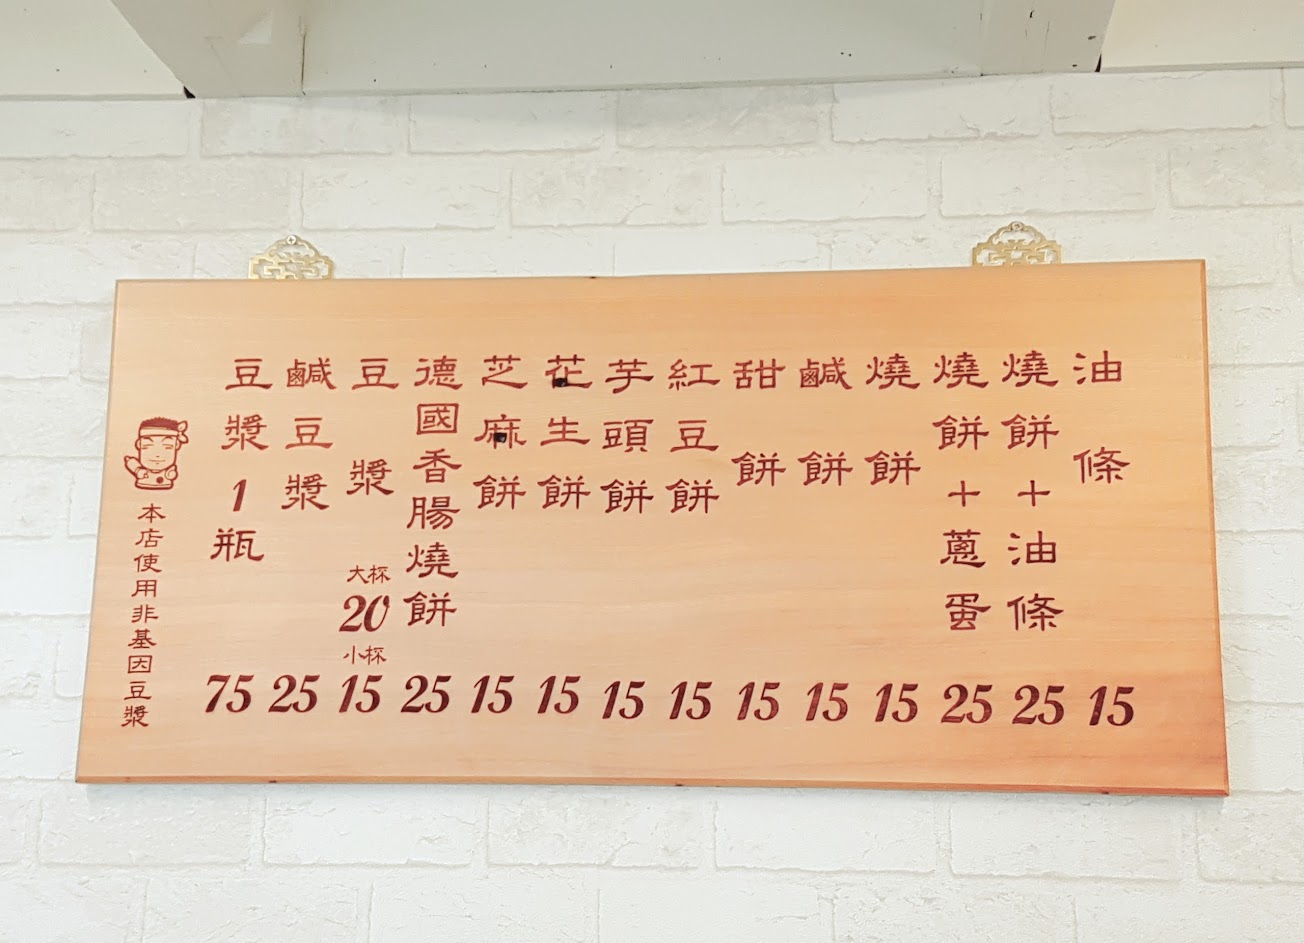 油條 15
燒餅+油條 25
燒餅+蔥蛋 25
燒餅 15
鹹餅 15
甜餅 15
紅豆餅 15
芋頭餅 15
花生餅 15
芝麻餅 15
德國香腸燒餅 25
豆漿 大杯 20 小杯 15
鹹豆漿 25
豆漿1瓶 75
本店使用非基因豆漿